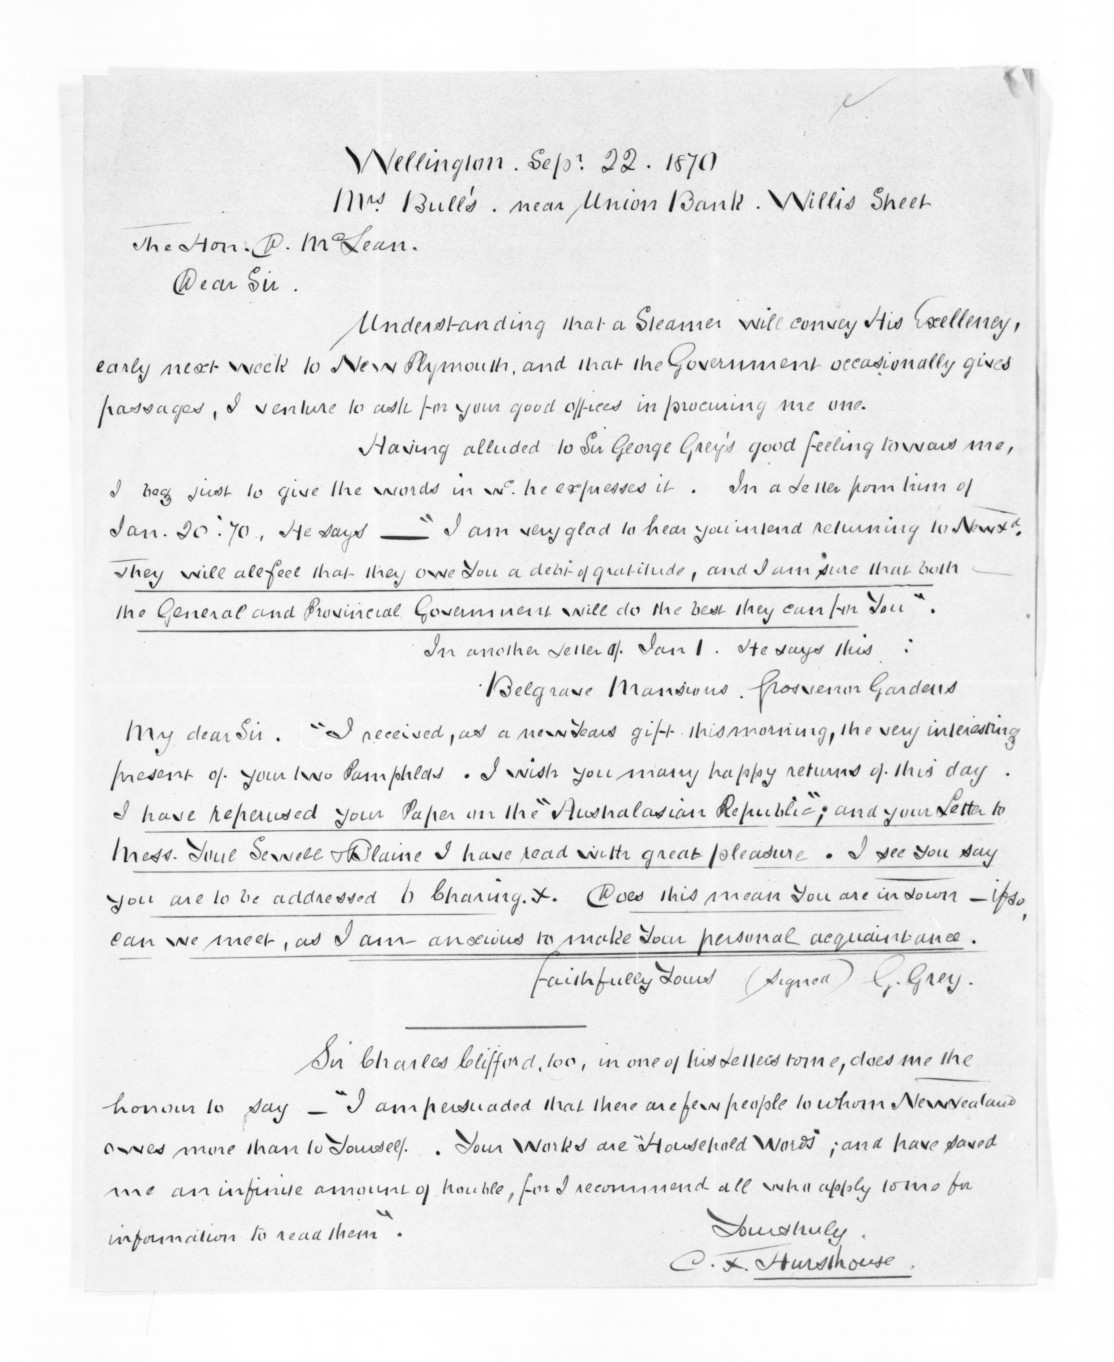 Wellington. Sepr. 22. 1870
Mrs Bull's. near Union Bank. Willis Street
The Hon. D. McLean.
Dear Sir.
Understanding that a Steamer will convey His Excellency,
early next week to New Plymouth, and that the Government occasionally gives
passages, I venture to ask for your good offices in procuring me one.
Having alluded to Sir George Grey's good feeling towars me,
I beg just to give the words in wc. he expresses it. In a Letter from him of
Jan. 20. '70., He says — "I am very glad to hear you intend returning to New Zd.
They will all feel that they owe You a debt of gratitude, and I am sure that both —
the General and Provincial Government will do the best they can for You".
In another Letter of Jan 1. He says this :
Belgrave Mansions. Grosvenor Gardens
My dear Sir. "I received, as a new Years gift this morning, the very interesting
present of your two Pamphlets. I wish you many happy returns of this day.
I have reperused your Paper on the "Australasian Republic"; and your Letter to
Mess. Youl Sewell & Blaine I have read with great pleasure. I see you say
you are to be addressed to Charing. X. Does this mean You are in Town — if so,
can we meet, as I am anxious to make Your personal acquaintance.
Faithfully Yours (signed) G. Grey.
Sir Charles Clifford, too, in one of his Letters to me, does me the
honour to say — "I am persuaded that there are few people to whom New Zealand
owes more than to Yourself. Your Works are "Household Words"; and have saved
me an infinite amount of trouble, for I recommend all who apply to me for
information to read them".
Yours truly.
C. F. Hursthouse.